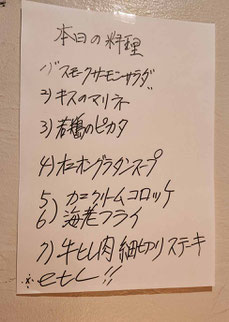 本日の料理
1) スモークサーモンサラダ
2) キスのマリネ
3) 若鶏のピカタ
4) オニオングラタンスープ
5) カニクリームコロッケ
6) 海老フライ
7) 牛ヒレ肉 細切りステキ
etc!!